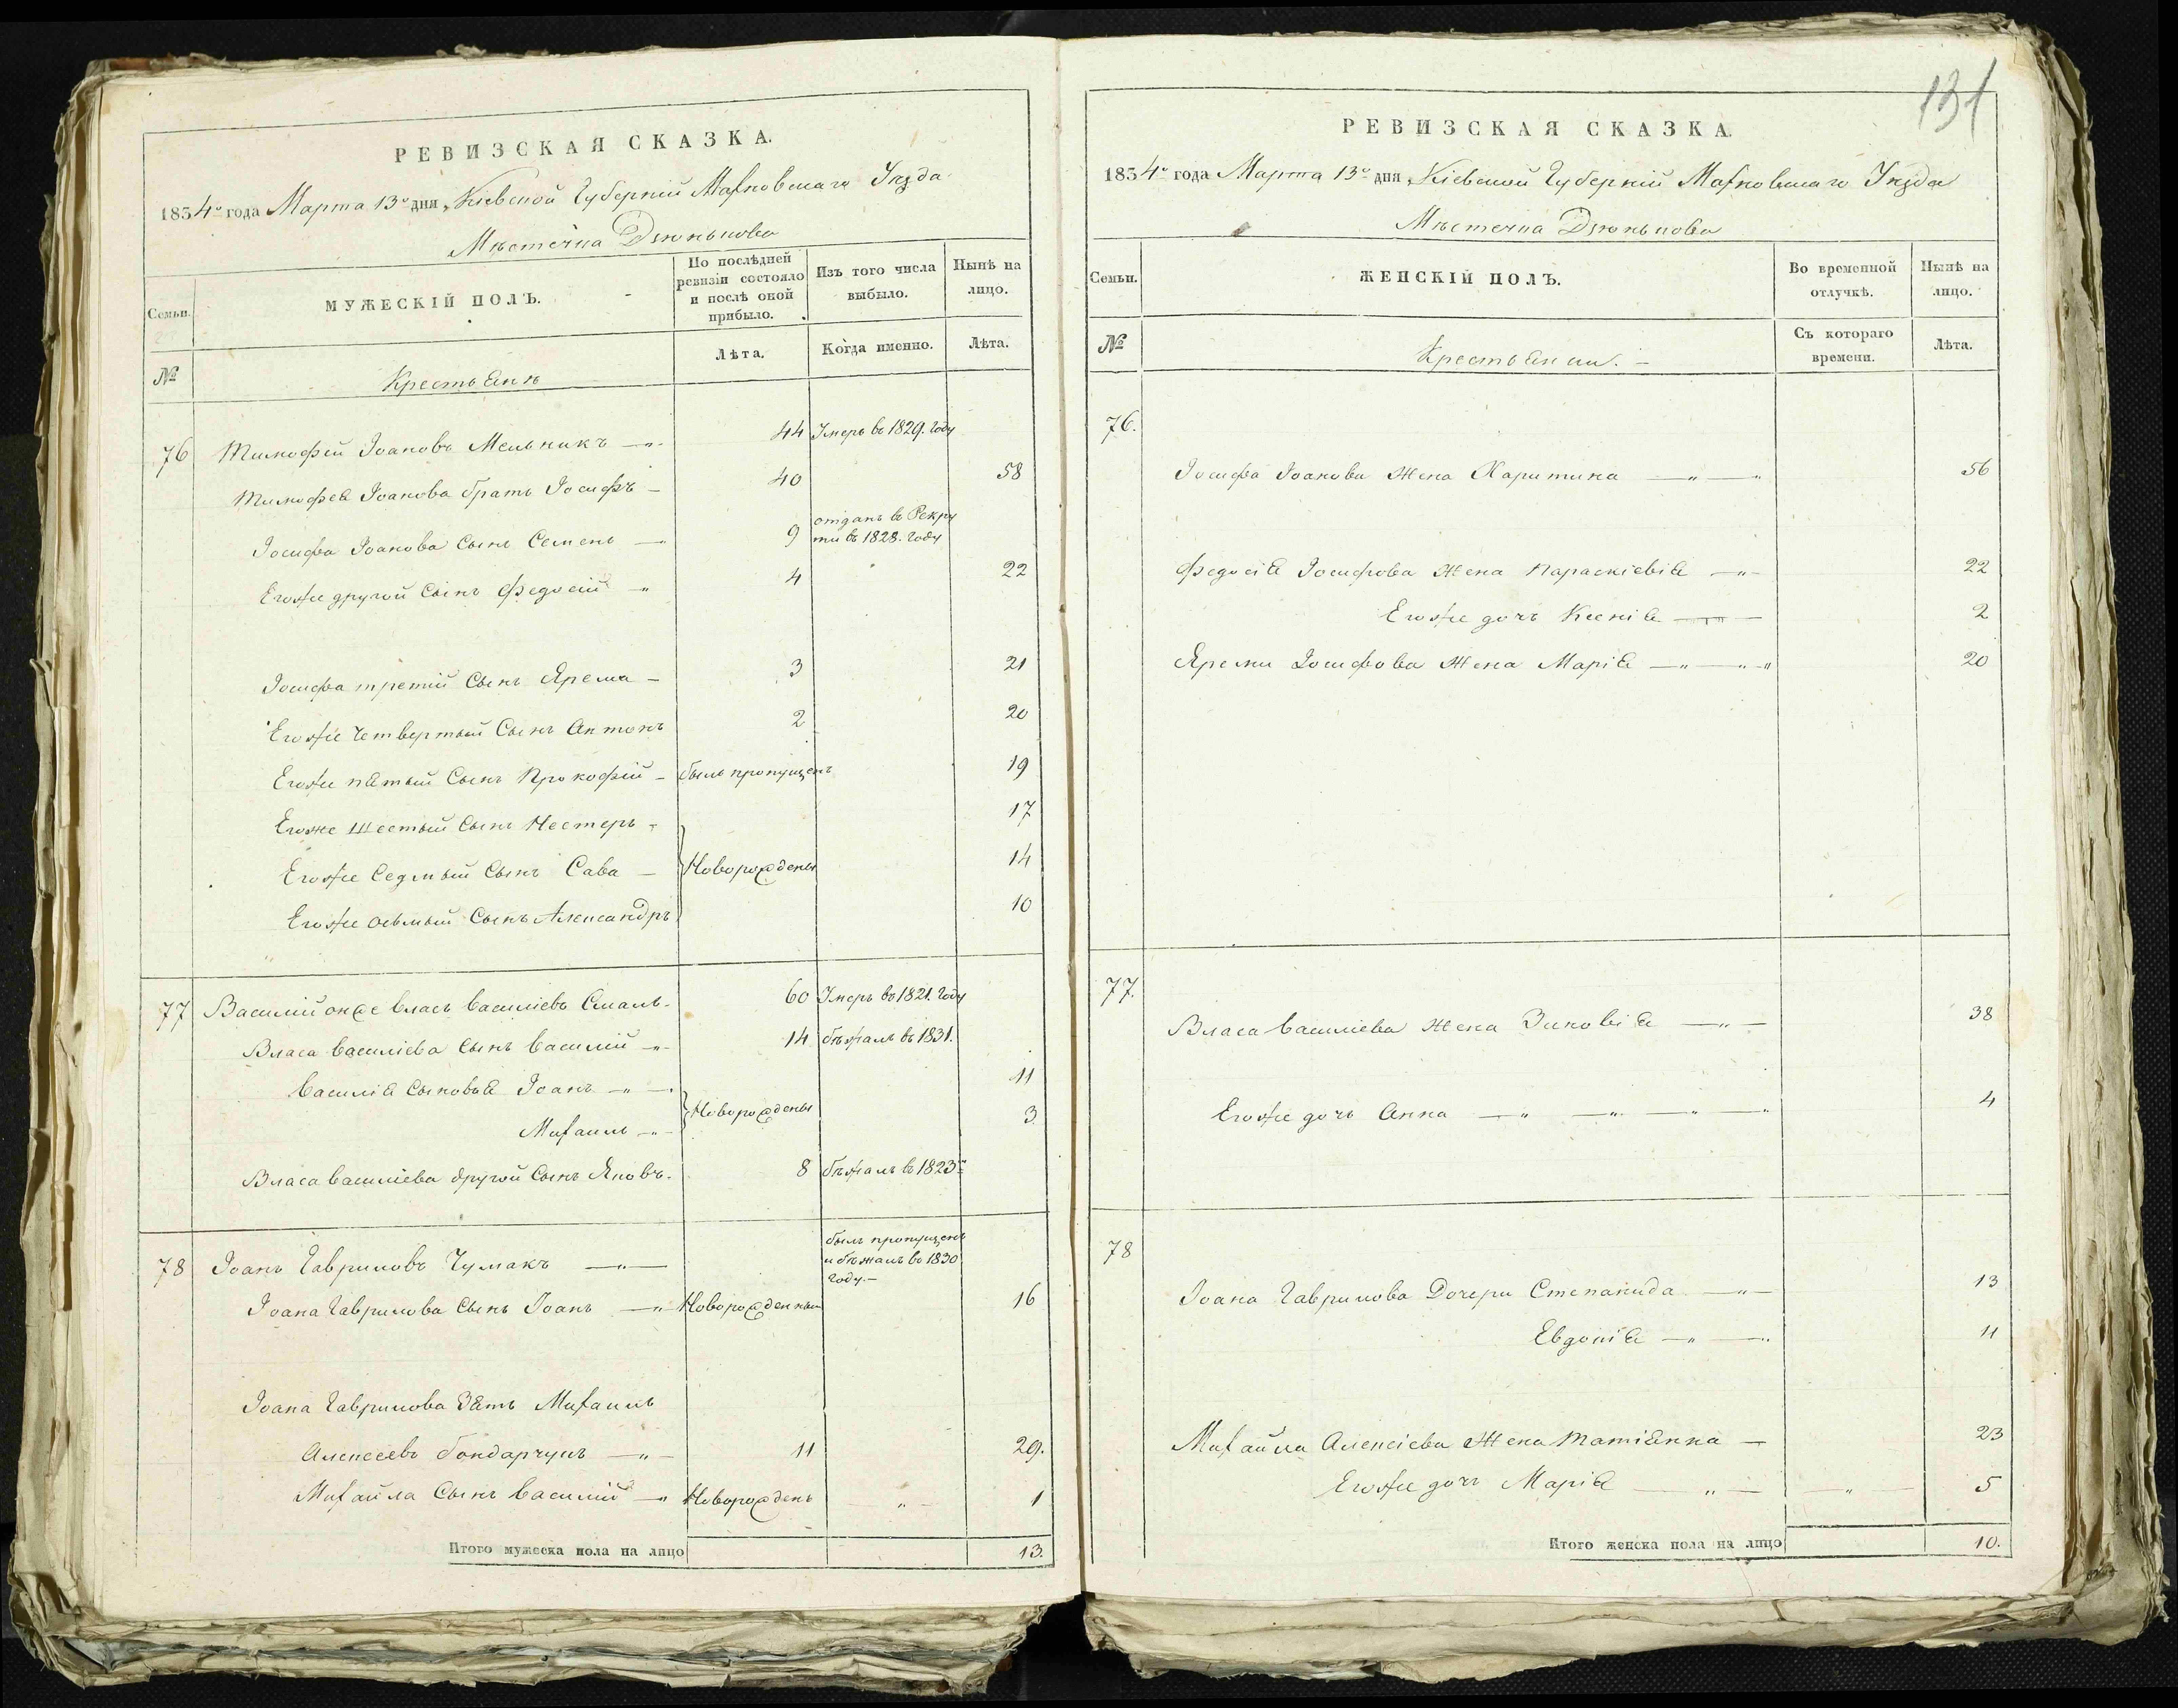 РЕВИЗСКАЯ СКАЗКА.
1834го года Марта 13го дня, Кіевской Губерніи Махновскаго Уѣзда
Мѣстечка Дзюнькова
Семьи.
МУЖЕСКІЙ ПОЛЪ.
По послѣдней ревизіи состояло и послѣ оной прибыло.
Изъ того числа выбыло.
Нынѣ на лицо.
№
Крестьянѣ
Лѣта.
Когда именно.
Лѣта.
76 Тимофей Іоановъ Мельникъ 44 Умеръ въ 1829. году
Тимофея Іоанова братъ Іосифъ 40 58
Іосифа Іоанова Сынъ Семенъ 9 отданъ в Рекру
ти въ 1828. году
Егоже другой Сынъ Федосій 4 22
Іосифа третій Сынъ Ярема 3 21
Егоже Четвертый Сынъ Антонъ 2 20
Егоже пятый Сынъ Прокофій былъ пропущенъ 19
Егоже Шестый Сынъ Нестеръ 17
Егоже Седмый Сынъ Сава Новорождены 14
Егоже осьмый Сынъ Александръ 10
77 Василий онже Власъ Василіевъ Смаль 60 Умеръ въ 1821. году
Власа Василіева Сынъ Василій 14 бѣжалъ въ 1831.
Василія Сыновья Іоанъ 11
Новорождены
Михаилъ 3
Власа Василіева другой Сынъ Яковъ 8 бѣжалъ в 1823го
78 Іоанъ Гавриловъ Чумакъ былъ пропущенъ
и бѣжалъ въ 1830
году.
Іоана Гаврилова Сынъ Іоанъ Новорожденный 16
Іоана Гаврилова Зять Михаилъ
Алексеевъ Бондарчукъ 11 29.
Михайла Сынъ Василий Новорожденъ 1
Итого мужеска пола на лицо 13.
131
РЕВИЗСКАЯ СКАЗКА.
1834го года Марта 13го дня, Кіевской Губерніи Махновскаго Уѣзда
Мѣстечка Дзюнькова
Семьи.
ЖЕНСКІЙ ПОЛЪ.
Во временной отлучкѣ.
Нынѣ на лицо.
№
Крестьянки.
Съ котораго времени.
Лѣта.
76.
Іосифа Іоанова Жена Харитина 56
Федосія Іосифова Жена Параскіевія 22
Егоже дочъ Ксенія 2
Яремы Іосифова Жена Марія 20
77.
Власа Василіева Жена Зиновія 38
Егоже дочъ Анна 4
78
Іоана Гаврилова Дочери Степанида 13
Евдокія 11
Михайла Алексіева Жена Татіянна 23
Егоже дочъ Марія 5
Итого женска пола на лицо 10.